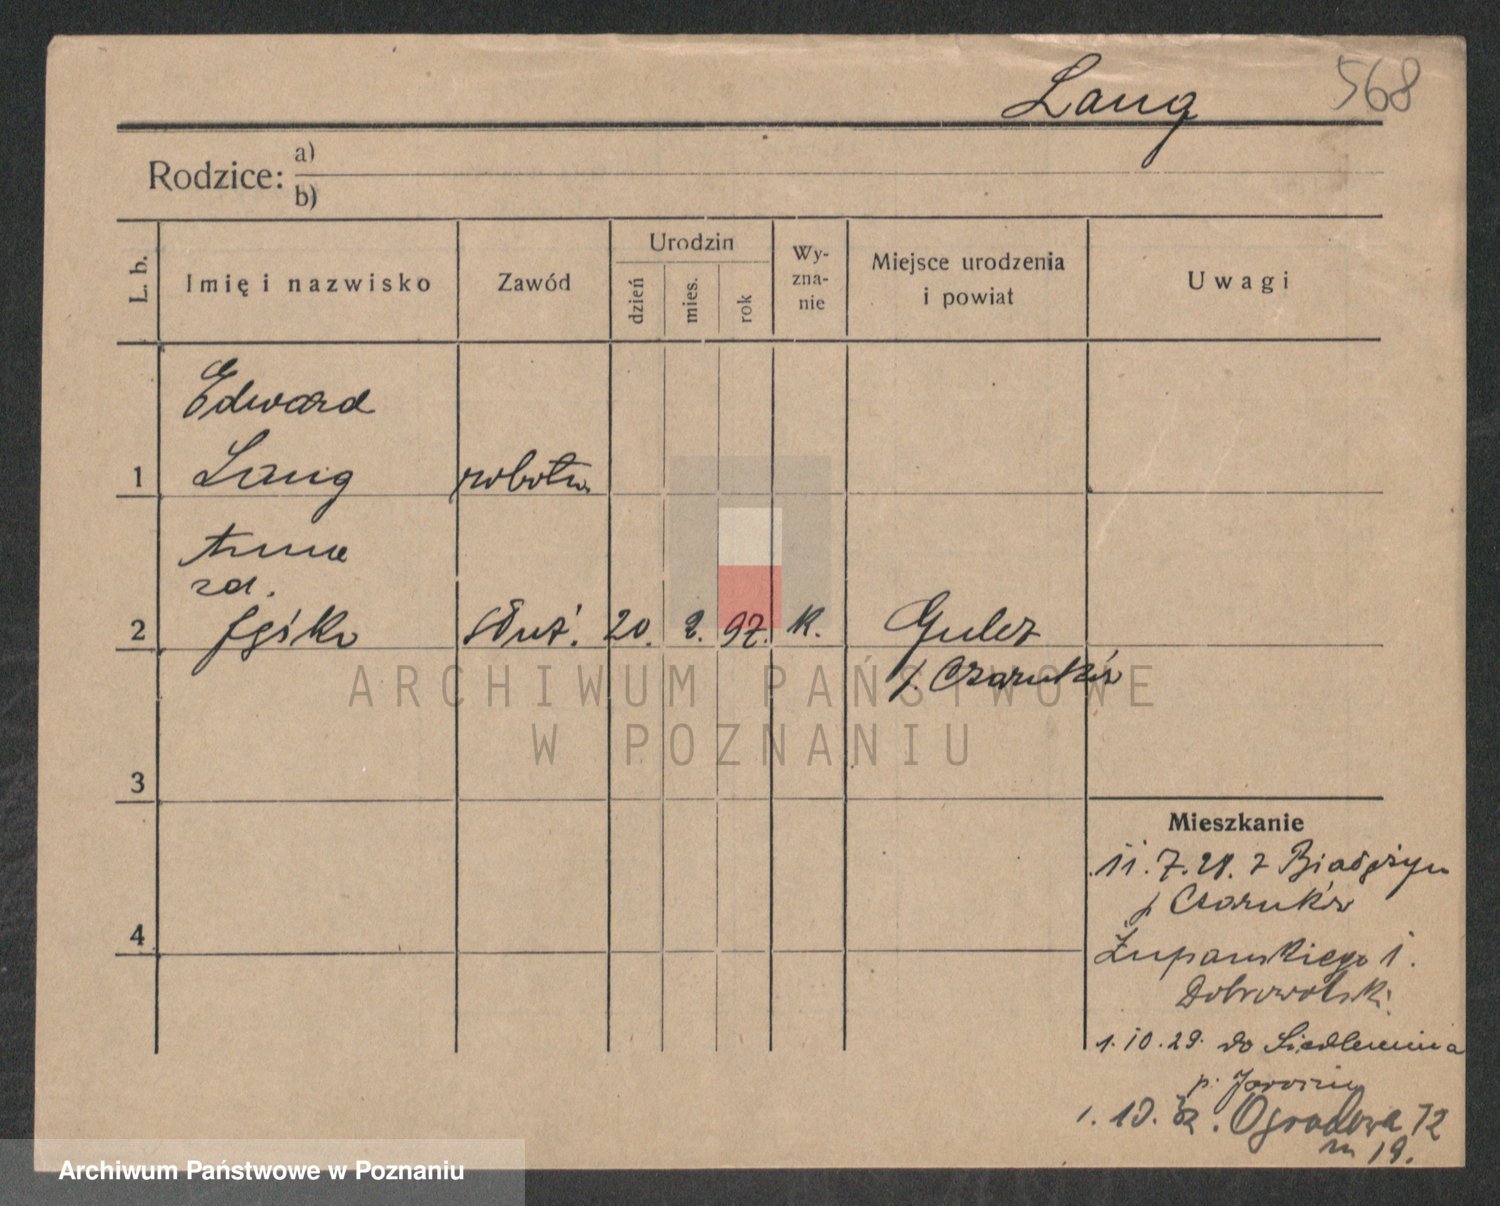 Lang 568
Rodzice: a)
b)
L. b.
Imię i nazwisko
Zawód
Urodzin
dzień
mies.
rok
Wy-
zna-
nie
Miejsce urodzenia
i powiat
Uwagi
Edward
1 Lang robotn.
Anna
zd.
2 służ. 20. 2. 97. k. Gulcz
p. Czarnków
3
4
Mieszkanie
11. 7. 28. z Białężyn
p Czarnków
Żupańskiego 1.
Dobrowolski
1. 10. 29. do Siedlemina
p. Jarocin
1. 10. 32. Ogrodowa 12
m 19.
ARCHIWUM PAŃSTWOWE
W POZNANIU
Archiwum Państwowe w Poznaniu